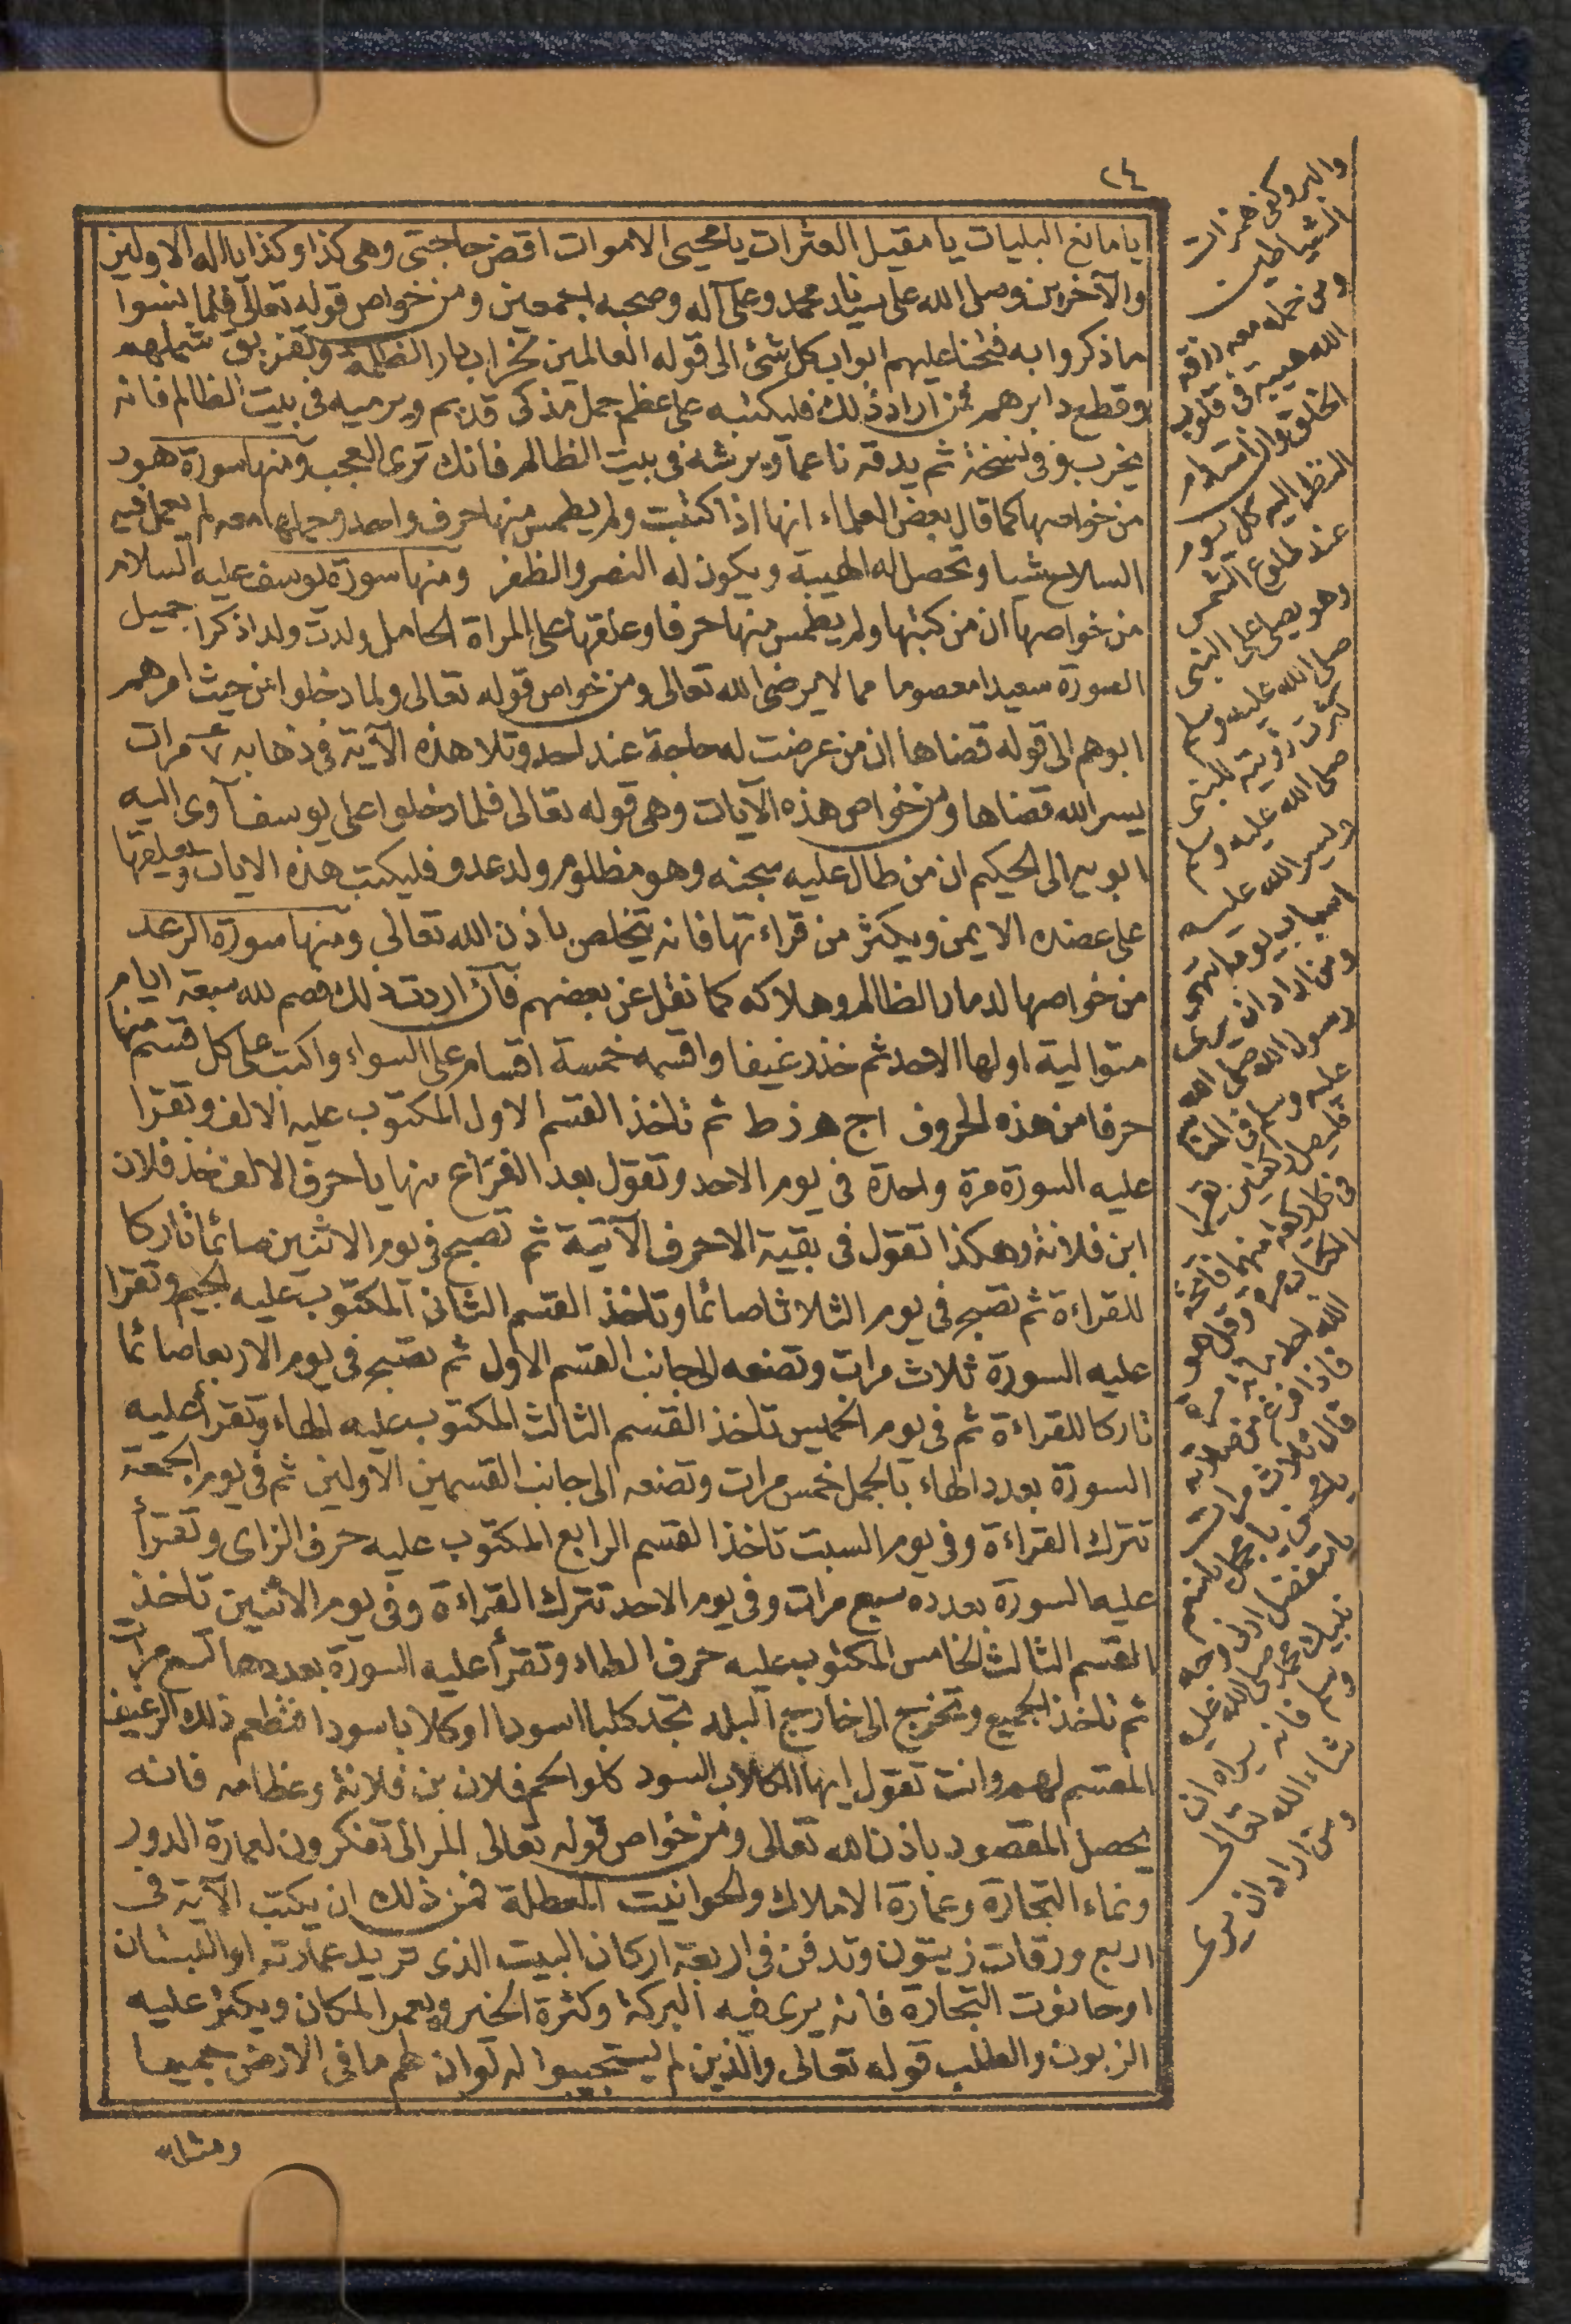 ٢٤
يا مانع البليات يا مقيل العثرات يا محيى الاموات اقض حاجتى وهى كذا وكذا يا اله الاولين
والآخرين وصلى الله على سيدنا محمد وعلى آله وصحبه اجمعين ومن خواص قوله تعالى فلما نسوا
ما ذكروا به فتحنا عليهم ابواب كل شئ الى قوله العالمين لخراب ديار الظلمة وتفريق شملهم
وقطع دابرهم فمن اراد ذلك فليكتبه على عظم جمل مذكى قديم ويرميه فى بيت الظالم فانه
يخرب وفى نسخة ثم يدقه ناعما ويرشه فى بيت الظالم فانك ترى العجب ومنها سورة هود
من خواصها كما قال بعض العلماء انها اذا كتبت ولم يطمس منها حرف واحد وحملها معه لم يعمل فيه
السلاح شيا وتحصل له الهيبة ويكون له النصر والظفر ومنها سورة يوسف عليه السلام
من خواصها ان من كتبها ولم يطمس منها حرفا وعلقها على المراة الحامل ولدت ولدا ذكرا جميل
الصورة سعيدا معصوما مما لا يرضى الله تعالى ومن خواص قوله تعالى ولما دخلوا من حيث امرهم
ابوهم الى قوله قضاها ان من عرضت له حاجة عند احد وتلا هذه الآية فى ذهابه ٧ مرات
يسر الله قضاها ومن خواص هذه الآيات وهى قوله تعالى فلما دخلوا على يوسف آوى اليه
ابويه الى الحكيم ان من طال عليه سجنه وهو مظلوم وله عدو فليكتب هذه الايات ويعلقها
على عضده الايمن ويكثر من قراءتها فانه يتخلص باذن الله تعالى ومنها سورة الرعد
من خواصها لدمار الظالم وهلاكه كما نقل عن بعضهم فان اردت ذلك فصم لله سبعة ايام
متوالية اولها الاحد ثم خذ رغيفا واقسمه خمسة اقسام على السواء واكتب على كل قسم منها
حرفا من هذه الحروف اج هز ط ثم تاخذ القسم الاول المكتوب عليه الالف وتقرا
عليه السورة مرة واحدة فى يوم الاحد وتقول بعد الفراغ منها يا حرف الالف خذ فلان
ابن فلانة وهكذا تقول فى بقية الاحرف الآتية ثم تصبح فى يوم الاثنين صائما تاركا
للقراءة ثم تصبح فى يوم الثلاثا صائما وتاخذ القسم الثانى المكتوب عليه الجيم وتقرا
عليه السورة ثلاث مرات وتضعه الى جانب القسم الاول ثم تصبح فى يوم الاربعا صائما
تاركا للقراءة ثم فى يوم الخميس تاخذ القسم الثالث المكتوب عليه الهاء وتقرأ عليه
السورة بعدد الهاء بالجمل خمس مرات وتضعه الى جانب القسمين الاولين ثم فى يوم الجمعة
تترك القراءة وفى يوم السبت تاخذ القسم الرابع المكتوب عليه حرف الزاى وتقرأ
عليه السورة بعدده سبع مرات وفى يوم الاحد تترك القراءة وفى يوم الاثنين تاخذ
القسم الثالث الخامس المكتوب عليه حرف الطاء وتقرأ عليه السورة بعددها تسع مرات
ثم تاخذ الجميع وتخرج الى خارج البلد تجد كلبا اسودا او كلابا سودا فتطعم ذلك الرغيف
المقسم لهم وانت تقول ايها الكلاب السود كلوا لحم فلان بن فلانة وعظامه فانه
يحصل المقصود باذن الله تعالى ومن خواص قوله تعالى المر الى تفكرون لعمارة الدور
ونماء التجارة وعمارة الاملاك والحوانيت المعطلة فمن ذلك ان يكتب الآية فى
اربع ورقات زيتون وتدفن فى اربعة اركان البيت الذى تريد عمارته او البستان
او حانوت التجارة فانه يرى فيه البركة وكثرة الخير ويعمر المكان ويكثر عليه
الزبون والطلب قوله تعالى والذين لم يستجيبوا له لو ان لهم ما فى الارض جميعا
ومثله
همزات
الشياطين
ومن حمله معه رزقه
الله هيبة فى قلوب
الخلق وان
النظر اليه كل يوم
عند طلوع الشمس
وهو يصلى على النبى
صلى الله عليه وسلم
كثرت رؤيته للنبى
صلى الله عليه وسلم
ويسر الله عليه
اسباب يومه انتهى
ومن اراد ان يرى
رسول الله صلى الله
عليه وسلم فى المنام
فليصل ركعتين يقرأ
فى كل ركعة منهما فاتحة
الكتاب مرة وقل هو
الله احد مائة مرة
فاذا فرغ من صلاته
قال ثلاث مرات
يا محسن يا مجمل يا منعم
يا متفضل ارنى وجه
نبيك محمد صلى الله عليه
وسلم فانه يراه ان
شاء الله تعالى
ومن اراد ان يرى